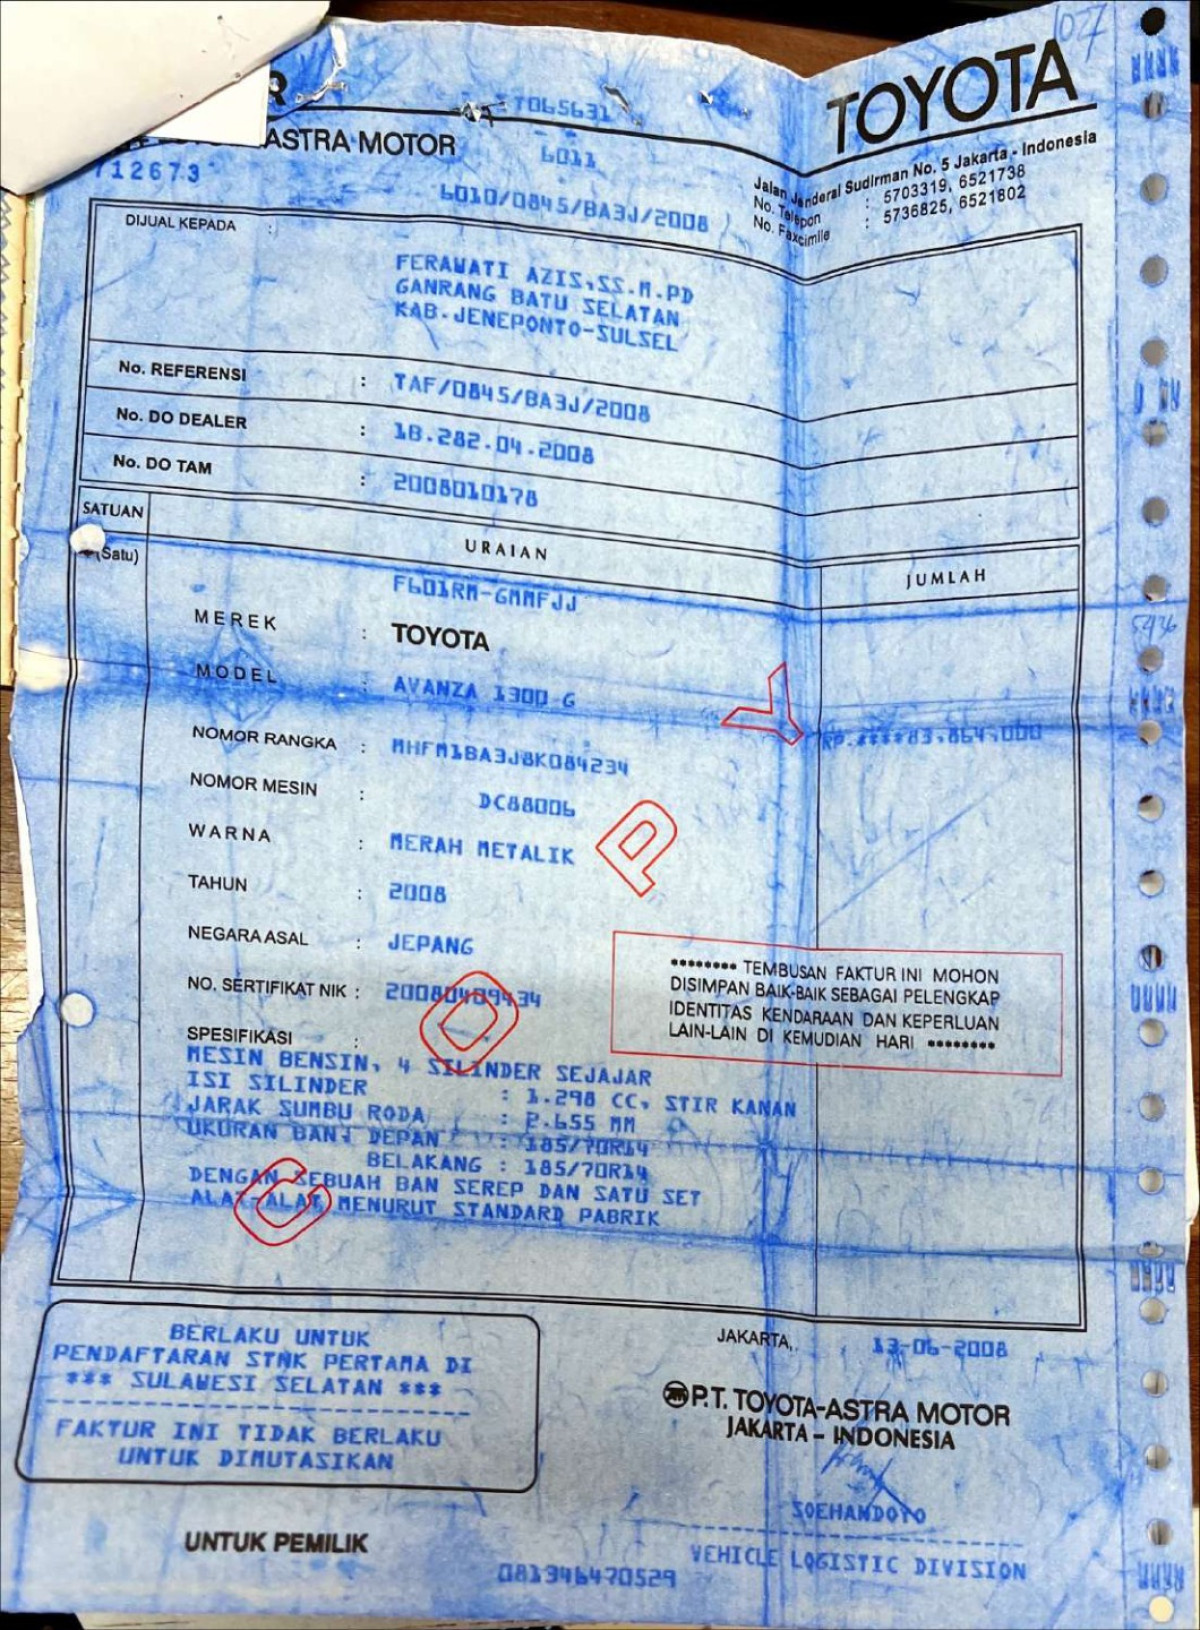 1027
R
T065631
TOYOTA
ASTRA MOTOR
6011
712673
6010/0845/BA3J/2008
Jalan Jenderal Sudirman No. 5 Jakarta - Indonesia
No. Telepon : 5703319, 6521738
No. Faxcimile : 5736825, 6521802
DIJUAL KEPADA :
FERAWATI AZIS,SS.M.PD
GANRANG BATU SELATAN
KAB.JENEPONTO-SULSEL
No. REFERENSI : TAF/0845/BA3J/2008
No. DO DEALER : 18.282.04.2008
No. DO TAM : 2008010178
SATUAN URAIAN JUMLAH
(Satu)
F601RM-GMMFJJ
MEREK : TOYOTA
MODEL : AVANZA 1300 G
NOMOR RANGKA : MHFM1BA3J8K084234 RP.****83,864,000
NOMOR MESIN : DC88006
WARNA : MERAH METALIK
TAHUN : 2008
NEGARA ASAL : JEPANG
NO. SERTIFIKAT NIK : 20080409434
COPY
******** TEMBUSAN FAKTUR INI MOHON
DISIMPAN BAIK-BAIK SEBAGAI PELENGKAP
IDENTITAS KENDARAAN DAN KEPERLUAN
LAIN-LAIN DI KEMUDIAN HARI ********
SPESIFIKASI :
MESIN BENSIN, 4 SILINDER SEJAJAR
ISI SILINDER : 1.298 CC, STIR KANAN
JARAK SUMBU RODA : 2.655 MM
UKURAN BAN: DEPAN : 185/70R14
BELAKANG : 185/70R14
DENGAN SEBUAH BAN SEREP DAN SATU SET
ALAT-ALAT MENURUT STANDARD PABRIK
BERLAKU UNTUK
PENDAFTARAN STNK PERTAMA DI
*** SULAWESI SELATAN ***
FAKTUR INI TIDAK BERLAKU
UNTUK DIMUTASIKAN
JAKARTA, 13-06-2008
P.T. TOYOTA-ASTRA MOTOR
JAKARTA – INDONESIA
SOEHANDOYO
VEHICLE LOGISTIC DIVISION
UNTUK PEMILIK
081346470529